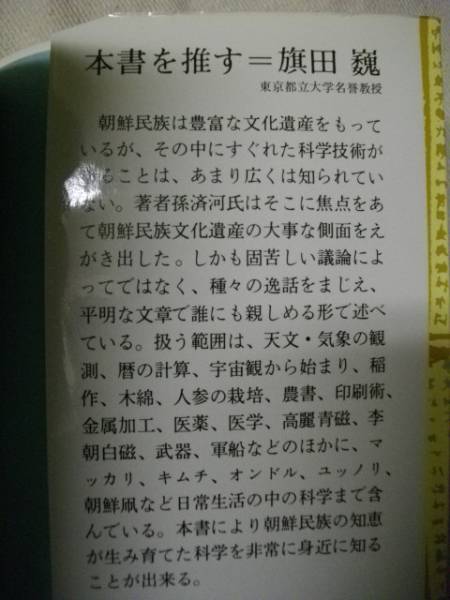 本書を推す＝旗田 巍
東京都立大学名誉教授
朝鮮民族は豊富な文化遺産をもって
いるが、その中にすぐれた科学技術が
ることは、あまり広くは知られてい
ない。著者孫済河氏はそこに焦点をあ
て朝鮮民族文化遺産の大事な側面をえ
がき出した。しかも固苦しい議論によ
ってではなく、種々の逸話をまじえ、
平明な文章で誰にも親しめる形で述べ
ている。扱う範囲は、天文・気象の観
測、暦の計算、宇宙観から始まり、稲
作、木綿、人参の栽培、農書、印刷術、
金属加工、医薬、医学、高麗青磁、李
朝白磁、武器、軍船などのほかに、マ
ッカリ、キムチ、オンドル、ユッノリ、
朝鮮凧など日常生活の中の科学まで含
んでいる。本書により朝鮮民族の知恵
が生み育てた科学を非常に身近に知る
ことが出来る。